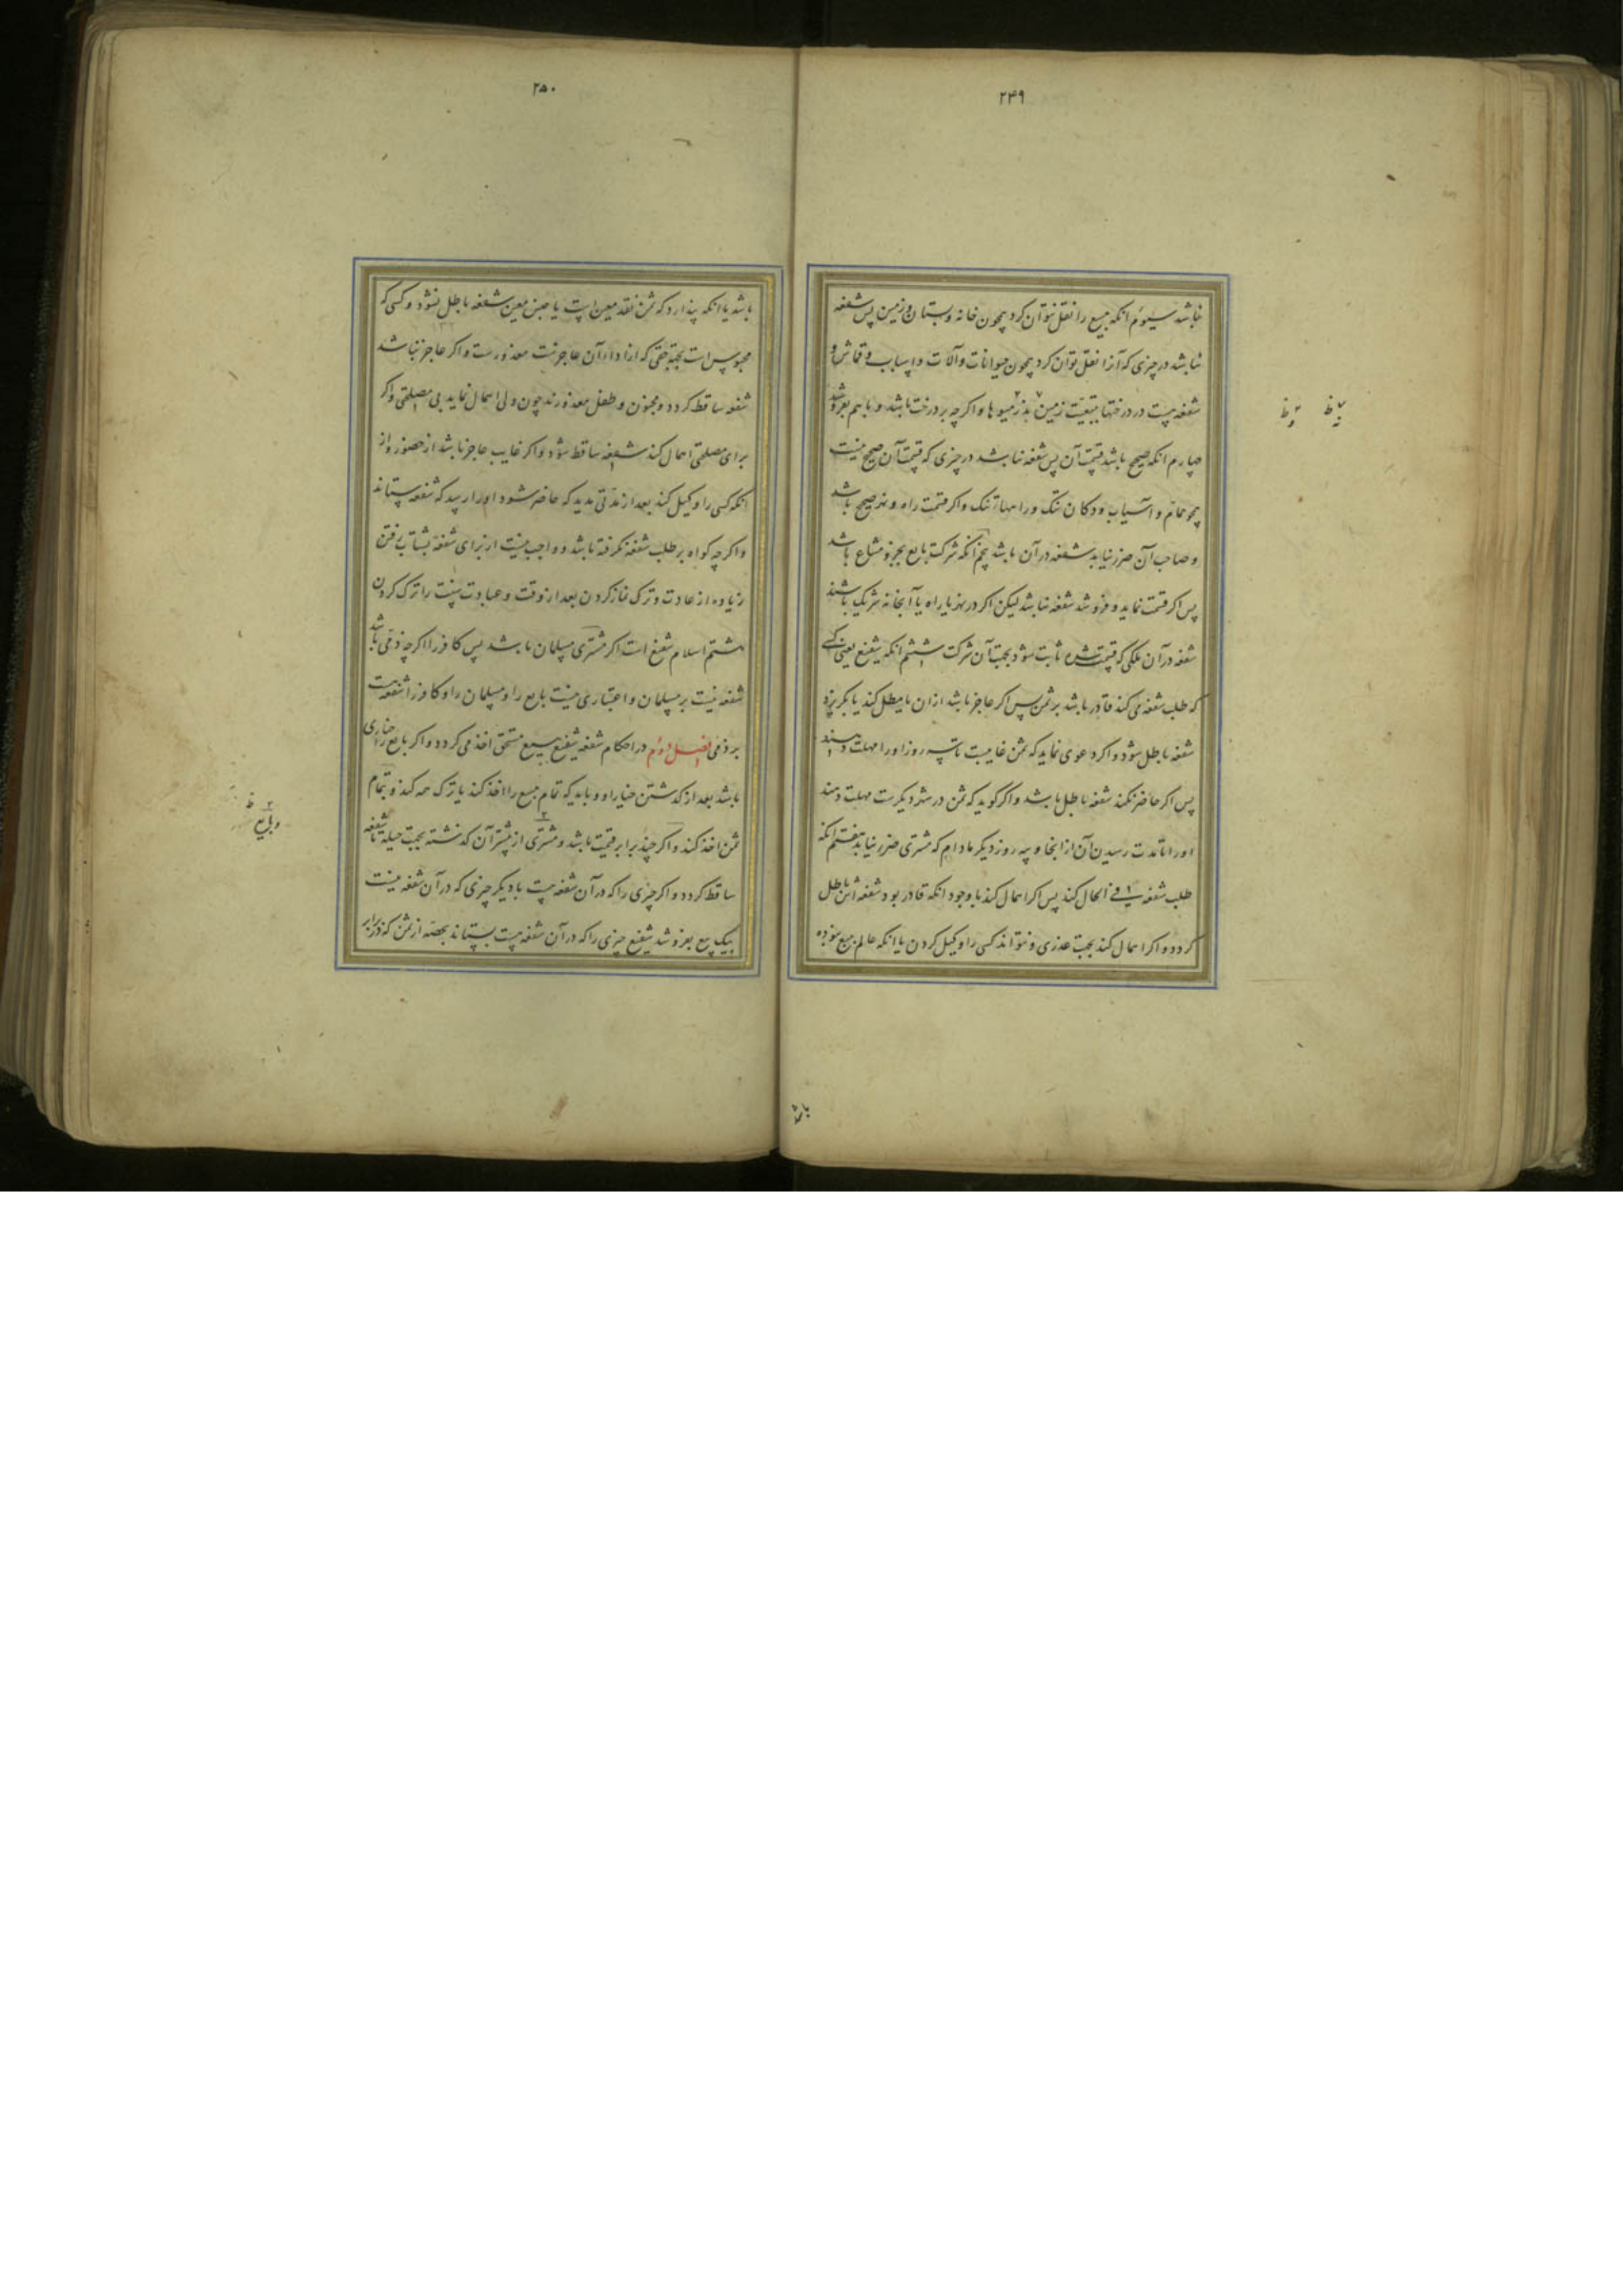 ۲۴۹
نباشد سیوم انکه مبیع را نقل نتوان کرد همچون خانه و بستان و زمین پس شفعه
نباشد در چیزی که آنرا نقل توان کرد همچون حیوانات و آلات و اسباب و قماش و
شفعه هست در درختها بتبعیّت زمین نه در میوها و اکرچه بر درخت باشد و باهم بفروشد
چهارم انکه صحیح باشد قسمت آن پس شفعه نباشد در چیزی که قسمت آن صحیح نیست
همچو حمّام و آسیاب و دکان تنک و راهها تنک و اکر قسمت راه و نهر صحیح باشد
و صاحب آن ضرر نیابد شفعه در آن باشد پنجم انکه شرکت بایع بجزو مشاع باشد
پس اکر قسمت نماید و فروشد شفعه نباشد لیکن اکر در نهر یا راه یا آبخانه شریک باشند
شفعه در آن ملکی که قسمت شده ثابت شود بجهت آن شرکت ششم انکه شفیع یعنی کسی
که طلب شفعه می کند قادر باشد بر ثمن پس اکر عاجز باشد از ان یا مطل کند یا بکریزد
شفعه باطل شود و اکر دعوی نماید که ثمن غایبست تا سه روز او را مهلت دهند
پس اکر حاضر نکند شفعه باطل باشد و اکر کوید که ثمن در شهر دیکرست مهلت دهند
او را تا مدت رسیدن آن از انجا و سه روز دیکر مادام که مشتری ضرر نیابد هفتم انکه
طلب شفعه فی الحال کند پس اکر اهمال کند با وجود انکه قادر بود شفعه اش باطل
کردد و اکر اهمال کند بجهت عذری و نتواند کسی را وکیل کردن یا انکه عالم ببیع نبوده
باشد
۲۵۰
باشد یا انکه پندارد که ثمن نقد معین است یا جنس معین شفعه باطل نشود و کسی که
محبوس است بجهة حقی که از اداء آن عاجزست معذورست و اکر عاجز نباشد
شفعه ساقط کردد و مجنون و طفل معذورند چون ولی اهمال نماید بی مصلحتی و اکر
برای مصلحتی اهمال کند شفعه ساقط شود و اکر غایب عاجز باشد از حضور و از
انکه کسی را وکیل کند بعد از مدّتی مدید که حاضر شود او را رسد که شفعه بستاند
و اکرچه کواه بر طلب شفعه نکرفته باشد و واجب نیست از برای شفعه بشتاب رفتن
زیاده از عادت و ترک نماز کردن بعد از وقت و عبادت سنّت را ترک کردن
هشتم اسلام شفیع است اکر مشتری مسلمان باشد پس کافر را اکرچه ذمّی باشد
شفعه نیست بر مسلمان و اعتباری نیست بایع را و مسلمان را و کافر را شفعه هست
بر ذمی فصل دوم در احکام شفعه شفیع ببیع مستحق اخذ می کردد و اکر بایع را خیاری
باشد بعد از کذشتن خیار او و باید که تمام مبیع را اخذ کند یا ترک همه کند و بتمام
ثمن اخذ کند و اکر چند برابر قیمت باشد و مشتری از بیشتر آن کذشته بجهت حیله تا شفعه
ساقط کردد و اکر چیزی را که در آن شفعه هست با دیکر چیزی که در آن شفعه نیست
بیک بیع بفروشد شفیع چیزی را که در آن شفعه هست بستاند بحصّه از ثمن که در برابر
و بایع